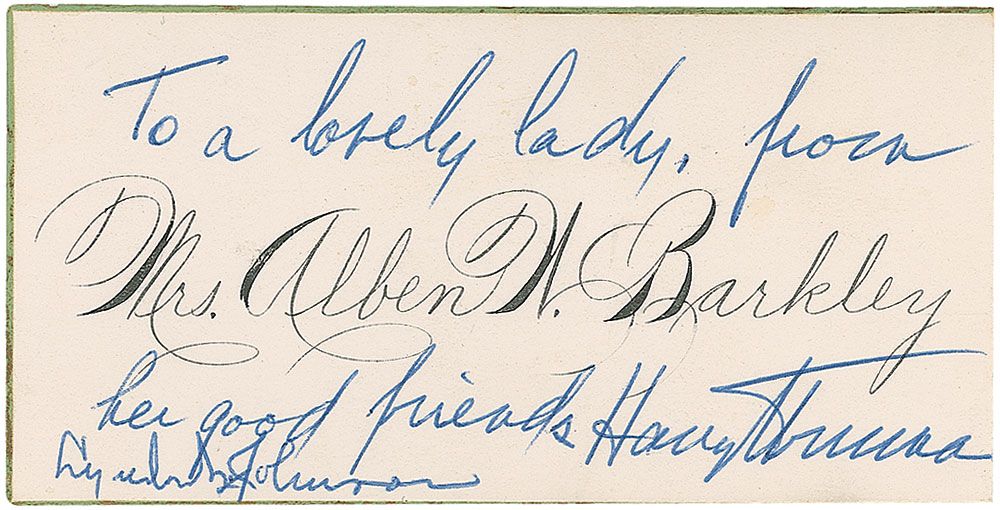 To a lovely lady, from
Mrs. Alben W. Barkley
her good friends Harry Truman
Lyndon B Johnson